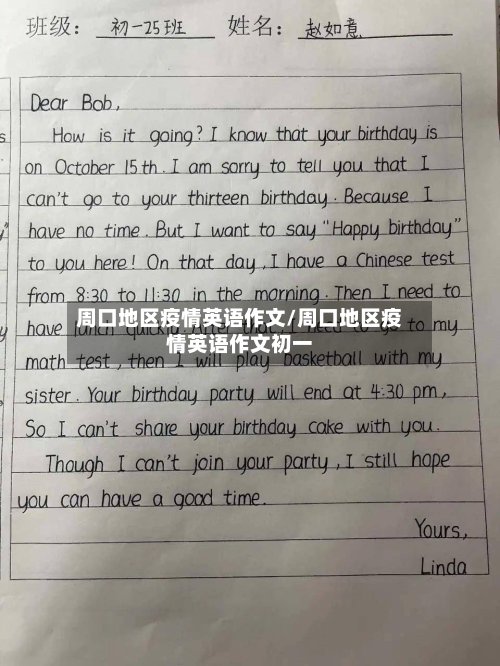 班级: 初一25班 姓名: 赵如意
Dear Bob,
How is it going? I know that your birthday is
on October 15th. I am sorry to tell you that I
can't go to your thirteen birthday. Because I
have no time. But I want to say "Happy birthday"
to you here! On that day, I have a Chinese test
from 8:30 to 11:30 in the morning. Then I need to
周口地区疫情英语作文/周口地区疫
情英语作文初一
have lunch to my
math test, then I will play basketball with my
sister. Your birthday party will end at 4:30 pm,
So I can't share your birthday cake with you.
Though I can't join your party, I still hope
you can have a good time.
Yours,
Linda